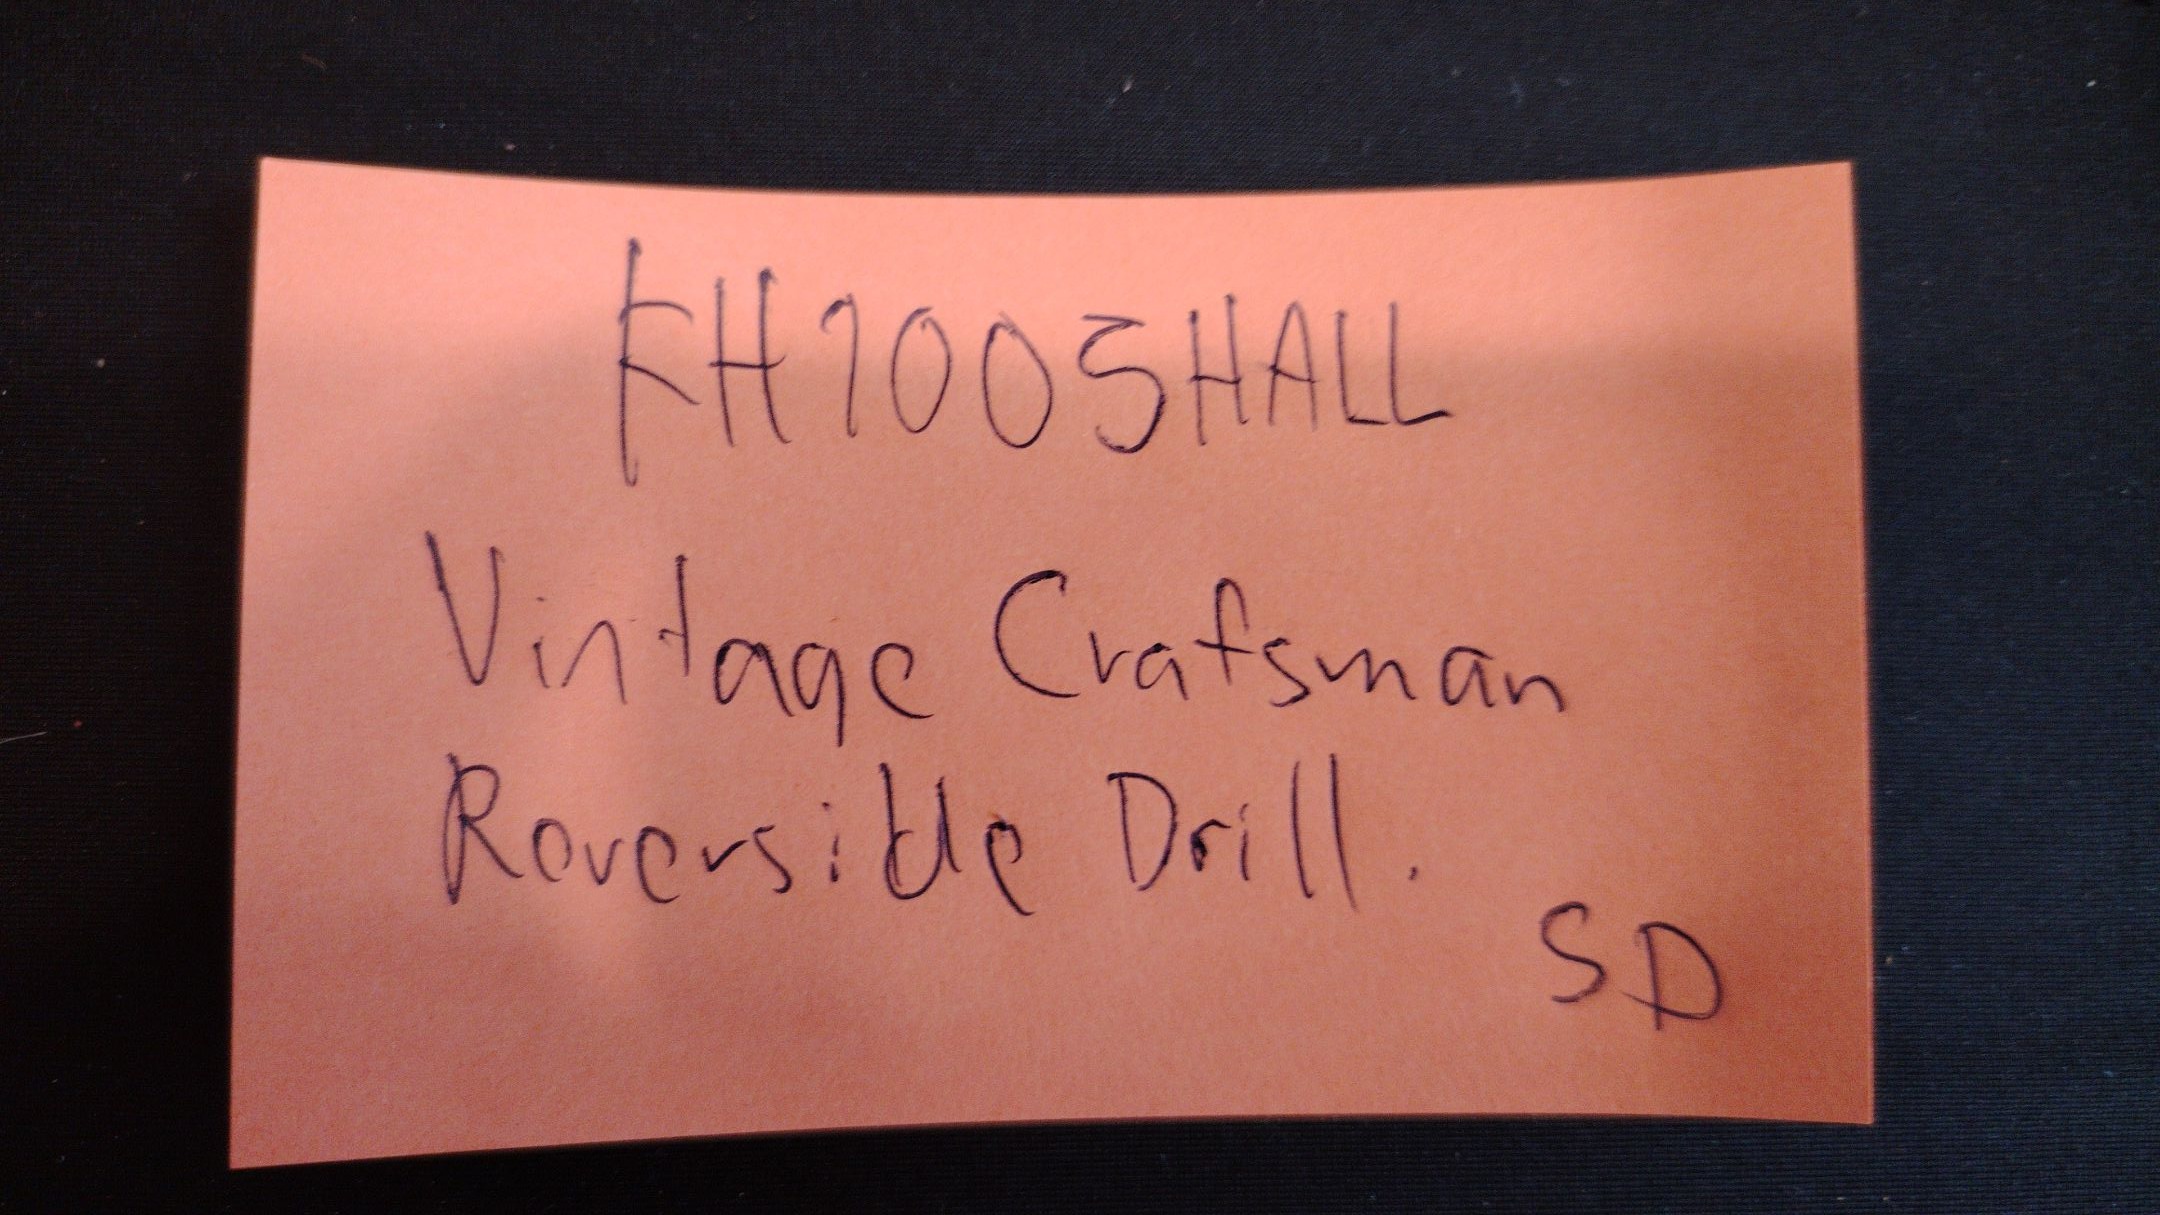 KH1005HALL
Vintage Crafsman
Reversible Drill.
SD